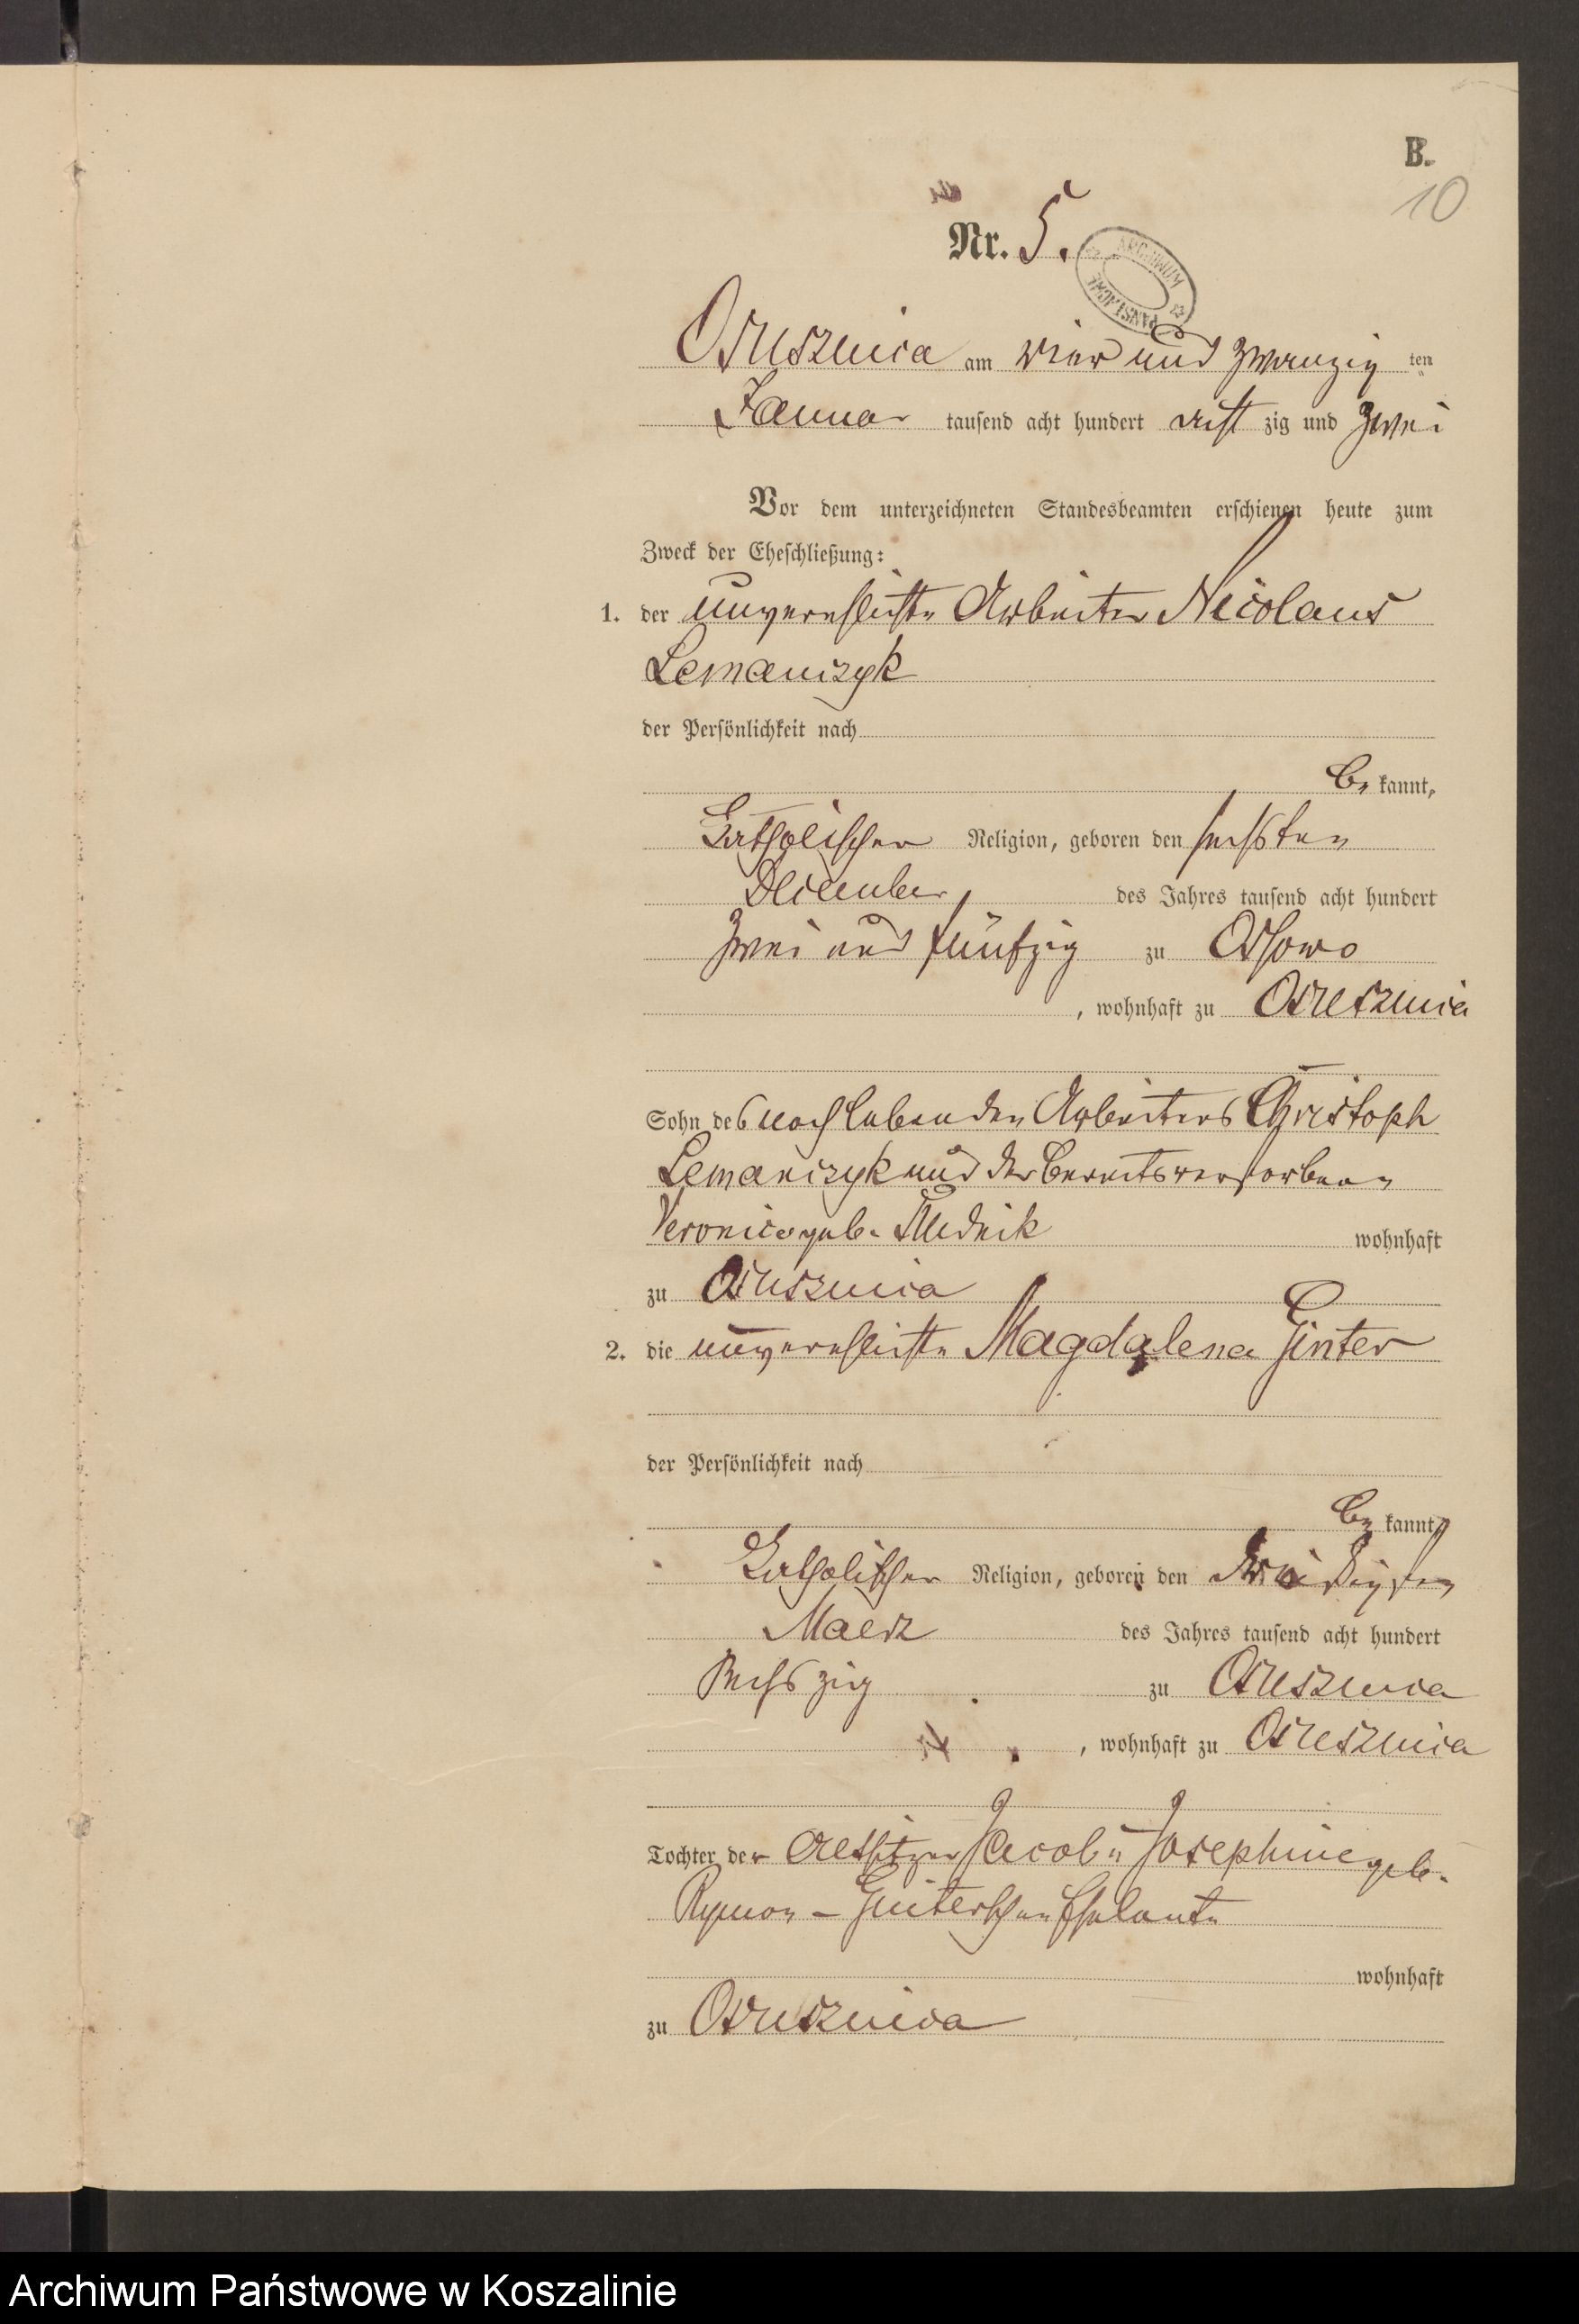 B.
10
Nr. 5.
ARCHIWUM PAŃSTWOWE
Osusznica am vier und zwanzig ten
Januar tausend acht hundert acht zig und zwei
Vor dem unterzeichneten Standesbeamten erschienen heute zum
Zweck der Eheschließung:
1. der unverehlichte Arbeiter Nicolaus
Lemanczyk
der Persönlichkeit nach
be kannt,
katholischer Religion, geboren den sechsten
December, des Jahres tausend acht hundert
zwei und fünfzig zu Ossowo
, wohnhaft zu Osusznica
Sohn des noch lebenden Arbeiters Christoph
Lemanczyk und der bereits verstorbenen
Veronica geb. wohnhaft
zu Osusznica
2. die unverehlichte Magdalena Ginter
der Persönlichkeit nach
be kannt,
katholischer Religion, geboren den dreißigsten
Maerz des Jahres tausend acht hundert
sechszig zu Osusznica
, wohnhaft zu Osusznica
Tochter der Altsitzer Jacob u Josephine geb.
Rymon - Ginterschen Eheleute
wohnhaft
zu Osusznica
Archiwum Państwowe w Koszalinie